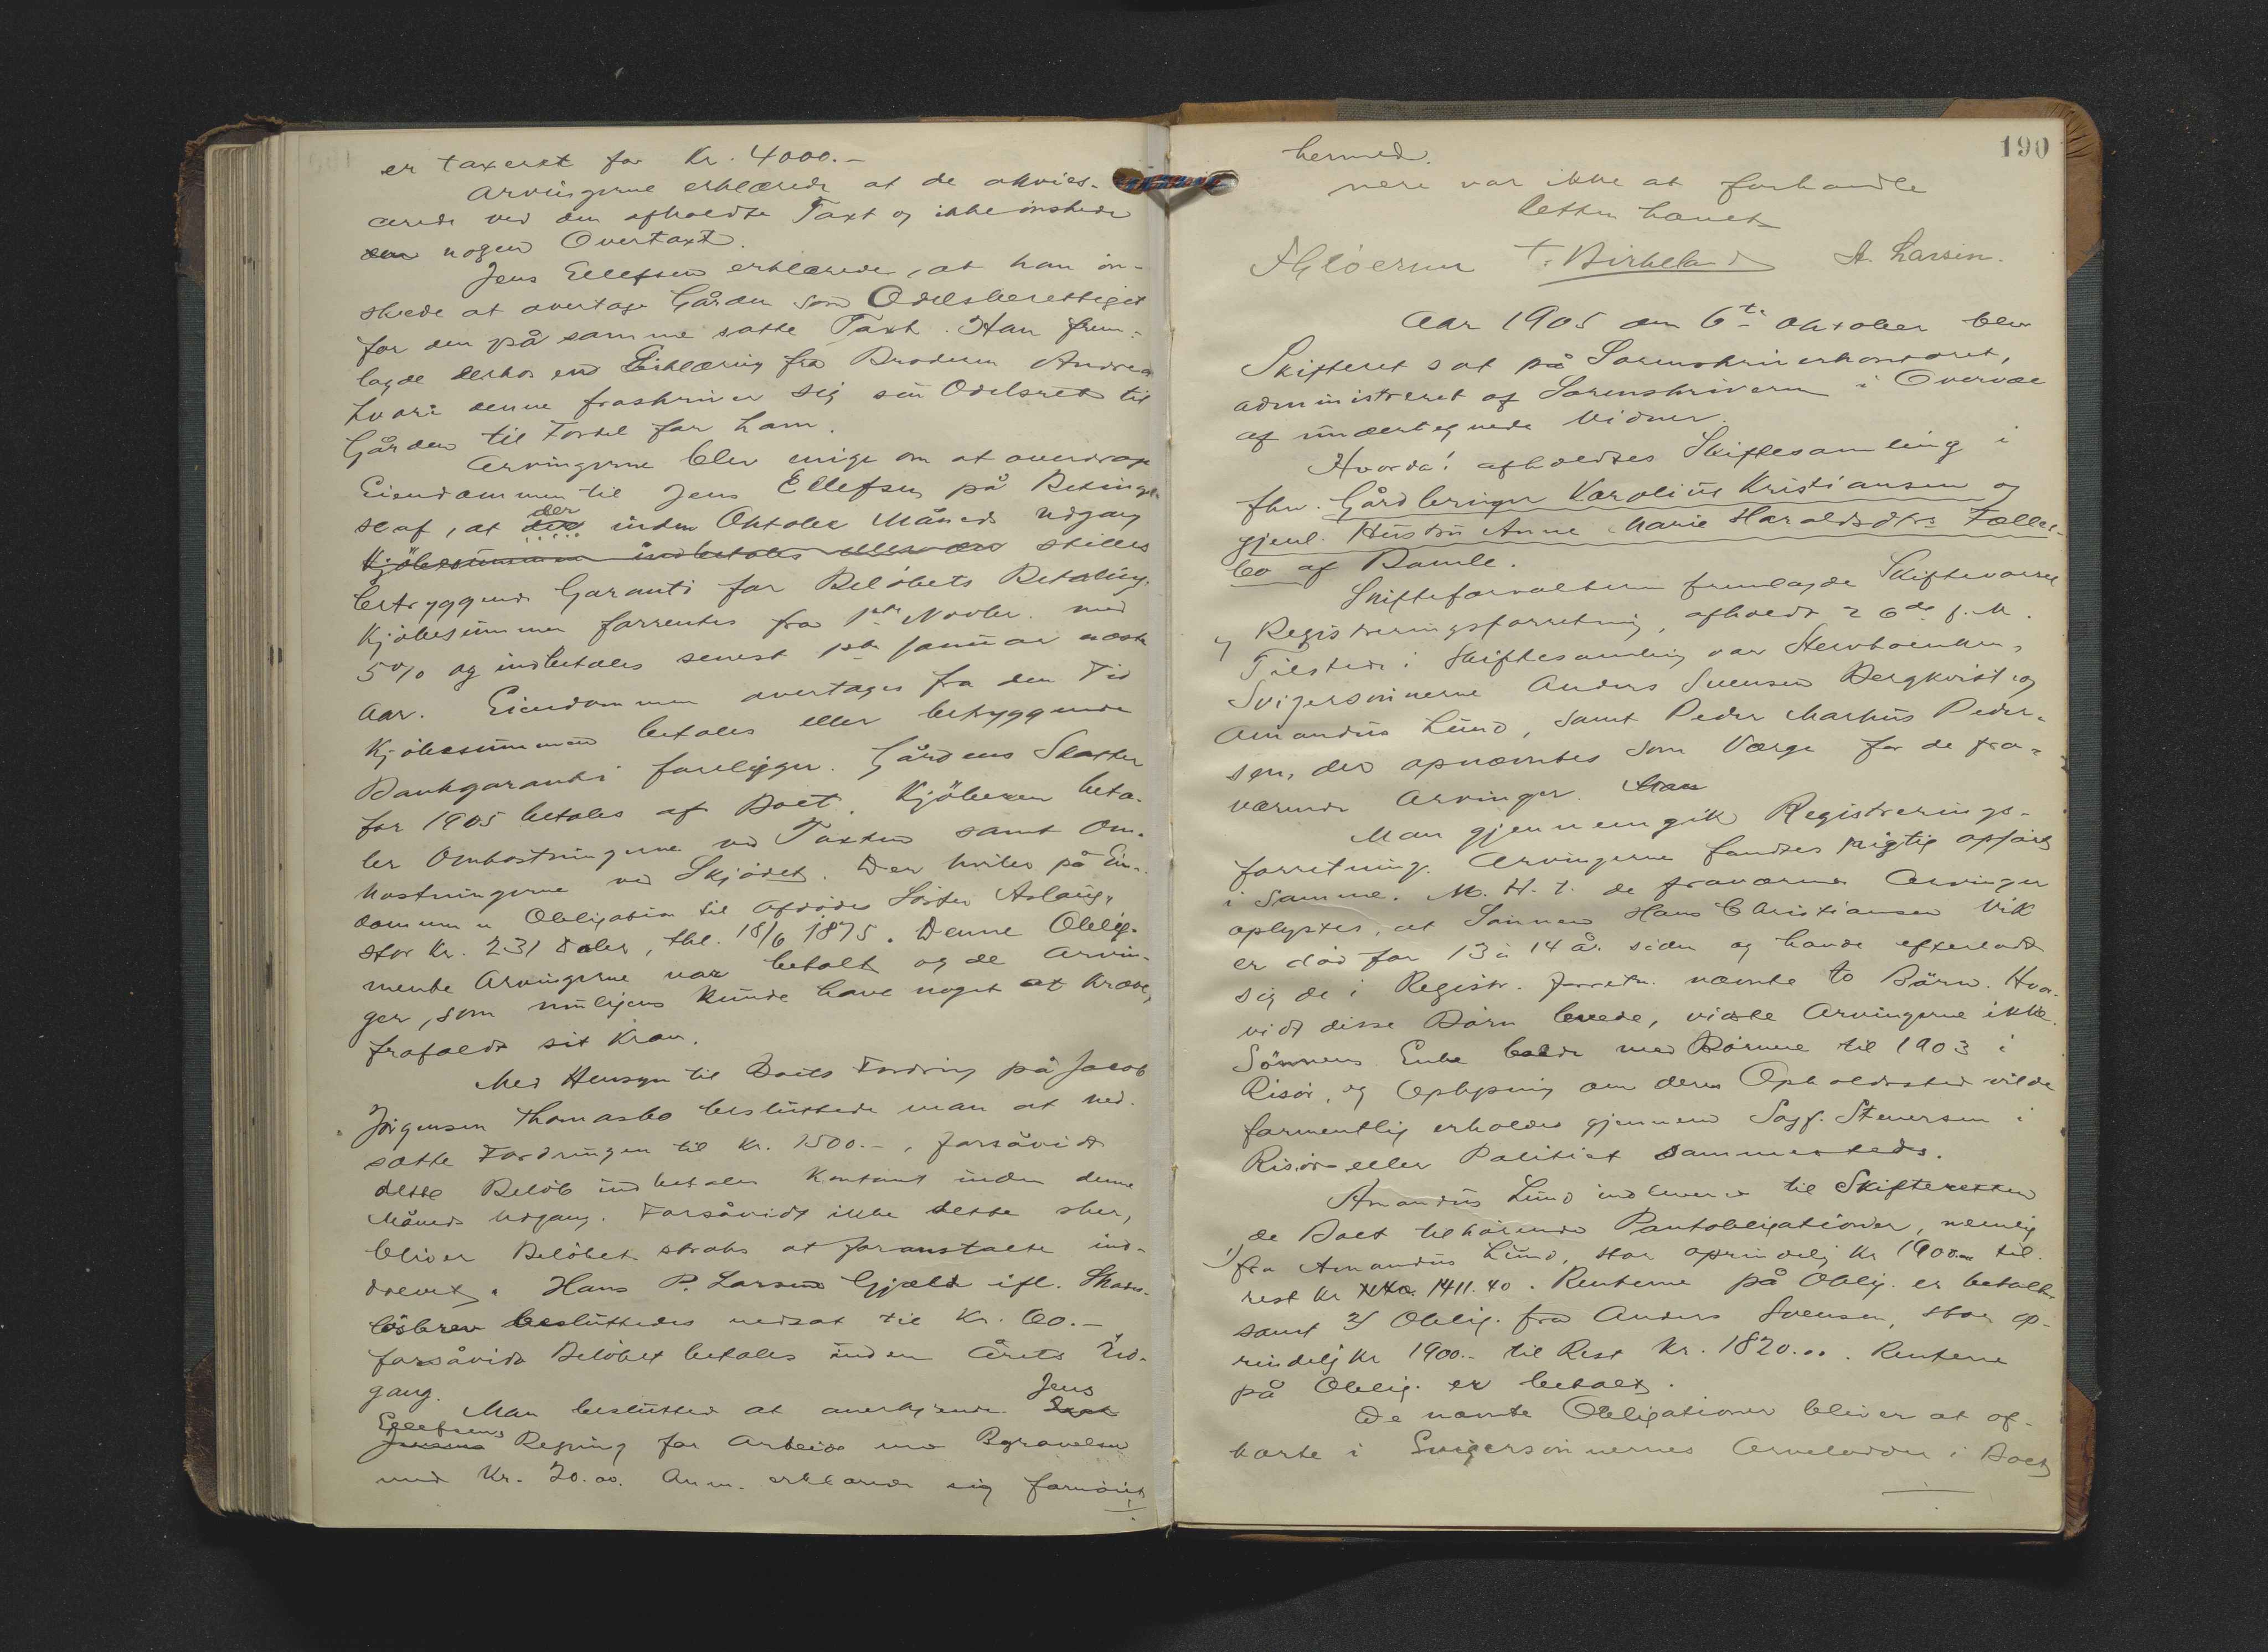 er taxeret for Kr. 4000.-
Arvingerne erklærede at de akvies-
cerede ved den afholdte Taxt og ikke ønskede
nogen Overtaxt.
Jens Ellefsen erklærede, at han øn-
skede at overtage Gården som Odelsberettiget
for den på samme satte Taxt. Han frem-
lagde derhos en Erklæring fra Broderen Andreas
hvori denne fraskriver sig sin Odelsret til
Gården til Fordel for ham.
Arvingerne blev enige om at overdrage
Eiendommen til Jens Ellefsen på Betingel-
se af, at der inden Oktober Måneds Udgang
Kjöbesummen indbetales eller stilles
betryggende Garanti for Belöbets Betaling.
Kjöbesummen forrentes fra 1ste Novbr. med
5% og indbetales senest 1ste Januar næste
Aar. Eiendommen overtages fra den Tid
Kjöbesummen betales eller betryggende
Bankgaranti foreligger. Gårdens Skatter
for 1905 betales af Boet. Kjöberen beta-
ler Omkostningerne ved Taxten samt Om-
kostningerne ved Skjödet. Der hviler på Ein-
dommen Obligation til Afdödes Söster Aslaug,
stor Kr. 231 Daler, thl. 18/6 1875. Denne Oblig.
mente Arvingerne var betalt og de Arvin-
ger, som muligens kunde have noget at kræve,
frafaldt sit Krav.
Med Hensyn til Boets Fordring på Jacob
Jörgensen Thomasbo besluttede man at ned-
satte Fordringen til Kr. 1500.-, forsåvidt
dette Belöb indbetales kontant inden denne
Måneds Udgang. Forsåvidt ikke dette sker,
bliver Belöbet straks at foranstalte ind-
drevet. Hans P. Larsens Gjæld ifl. Skades-
lösbrev besluttedes nedsat til Kr. 60.-
forsåvidt Belöbet betales inden Årets Ud-
gang. Jens
Man beslutted at anerkjende
Ellefsens Regning for Arbeide ved Begravelsen
med Kr. 20.00. Anm. erklærede sig fornöiet
190
hermed.
mere var ikke at forhandle
Retten hævet
T. Birkeland A. Larsen.
Aar 1905 den 6te Oktober blev
Skifteret sat på Sorenskriverkontoret,
administreret af Sorenskriveren i Overvær
af undertegnede Vidner.
Hvorda: afholdtes Skiftesamling i
fhv. Gårdbruger Karolius Kristiansen og
gjenl. Hustru Anne Marie Haraldsdtrs Fælles-
bo af Bamle.
Skifteforvalteren fremlagde Skiftevarsel
og Registreringsforretning, afholdt 26de f. M.
Tilstede i Skiftesamling var Stervboenken,
Svigersönnerne Anders Svensen Bergkvist og
Amandus Lund, samt Peder Markus Peder-
sen, der opnævntes som Værge for de fra-
værende Arvinger.
Man gjennemgik Registrerings-
forretning. Arvingerne fandtes rigtig opfört
i samme. M. H. t. de fraværende Arvinger
oplystes, at Sönnen Hans Christiansen Vik
er död for 13 à 14 År siden og havde efterladt
sig de i Registr. forretn. nævnte to Börn. Hvor-
vidt disse Börn levede, vidste Arvingerne ikke.
Sönnens Enke boede med Börnene til 1903 i
Risör, og Oplysning om deres Opholdssted vilde
formentlig erholdes gjennem Sagf. Stenersen i
Risör eller Politiet sammesteds.
Amandus Lund indleverer til Skifteretten
de Boet tilhörende Pantobligationer, nemlig
1) fra Amandus Lund, stor oprindelig Kr 1900.00 til
rest Kr 1411.40. Renterne på Oblig. er betalt
samt 2) Oblig. fra Anders Svensen, stor op-
rindelig Kr 1900.- til Rest Kr. 1820.00. Renterne
på Oblig. er betalt.
De nævnte Obligationer bliver at af-
korte i Svigersönnernes Arvelodder i Boet